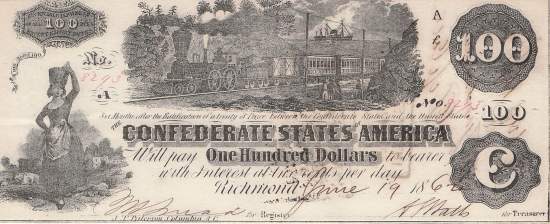 100
No.
8293
A
A
100
No. 8293
Six Months after the Ratification of a treaty of Peace between the Confederate States and the United States
100
THE CONFEDERATE STATES AMERICA
Will pay One Hundred Dollars to bearer
with Interest at two cents per day
Richmond June 19 1862
C
for Register
for Treasurer
J. T. Paterson, Columbia, S.C.